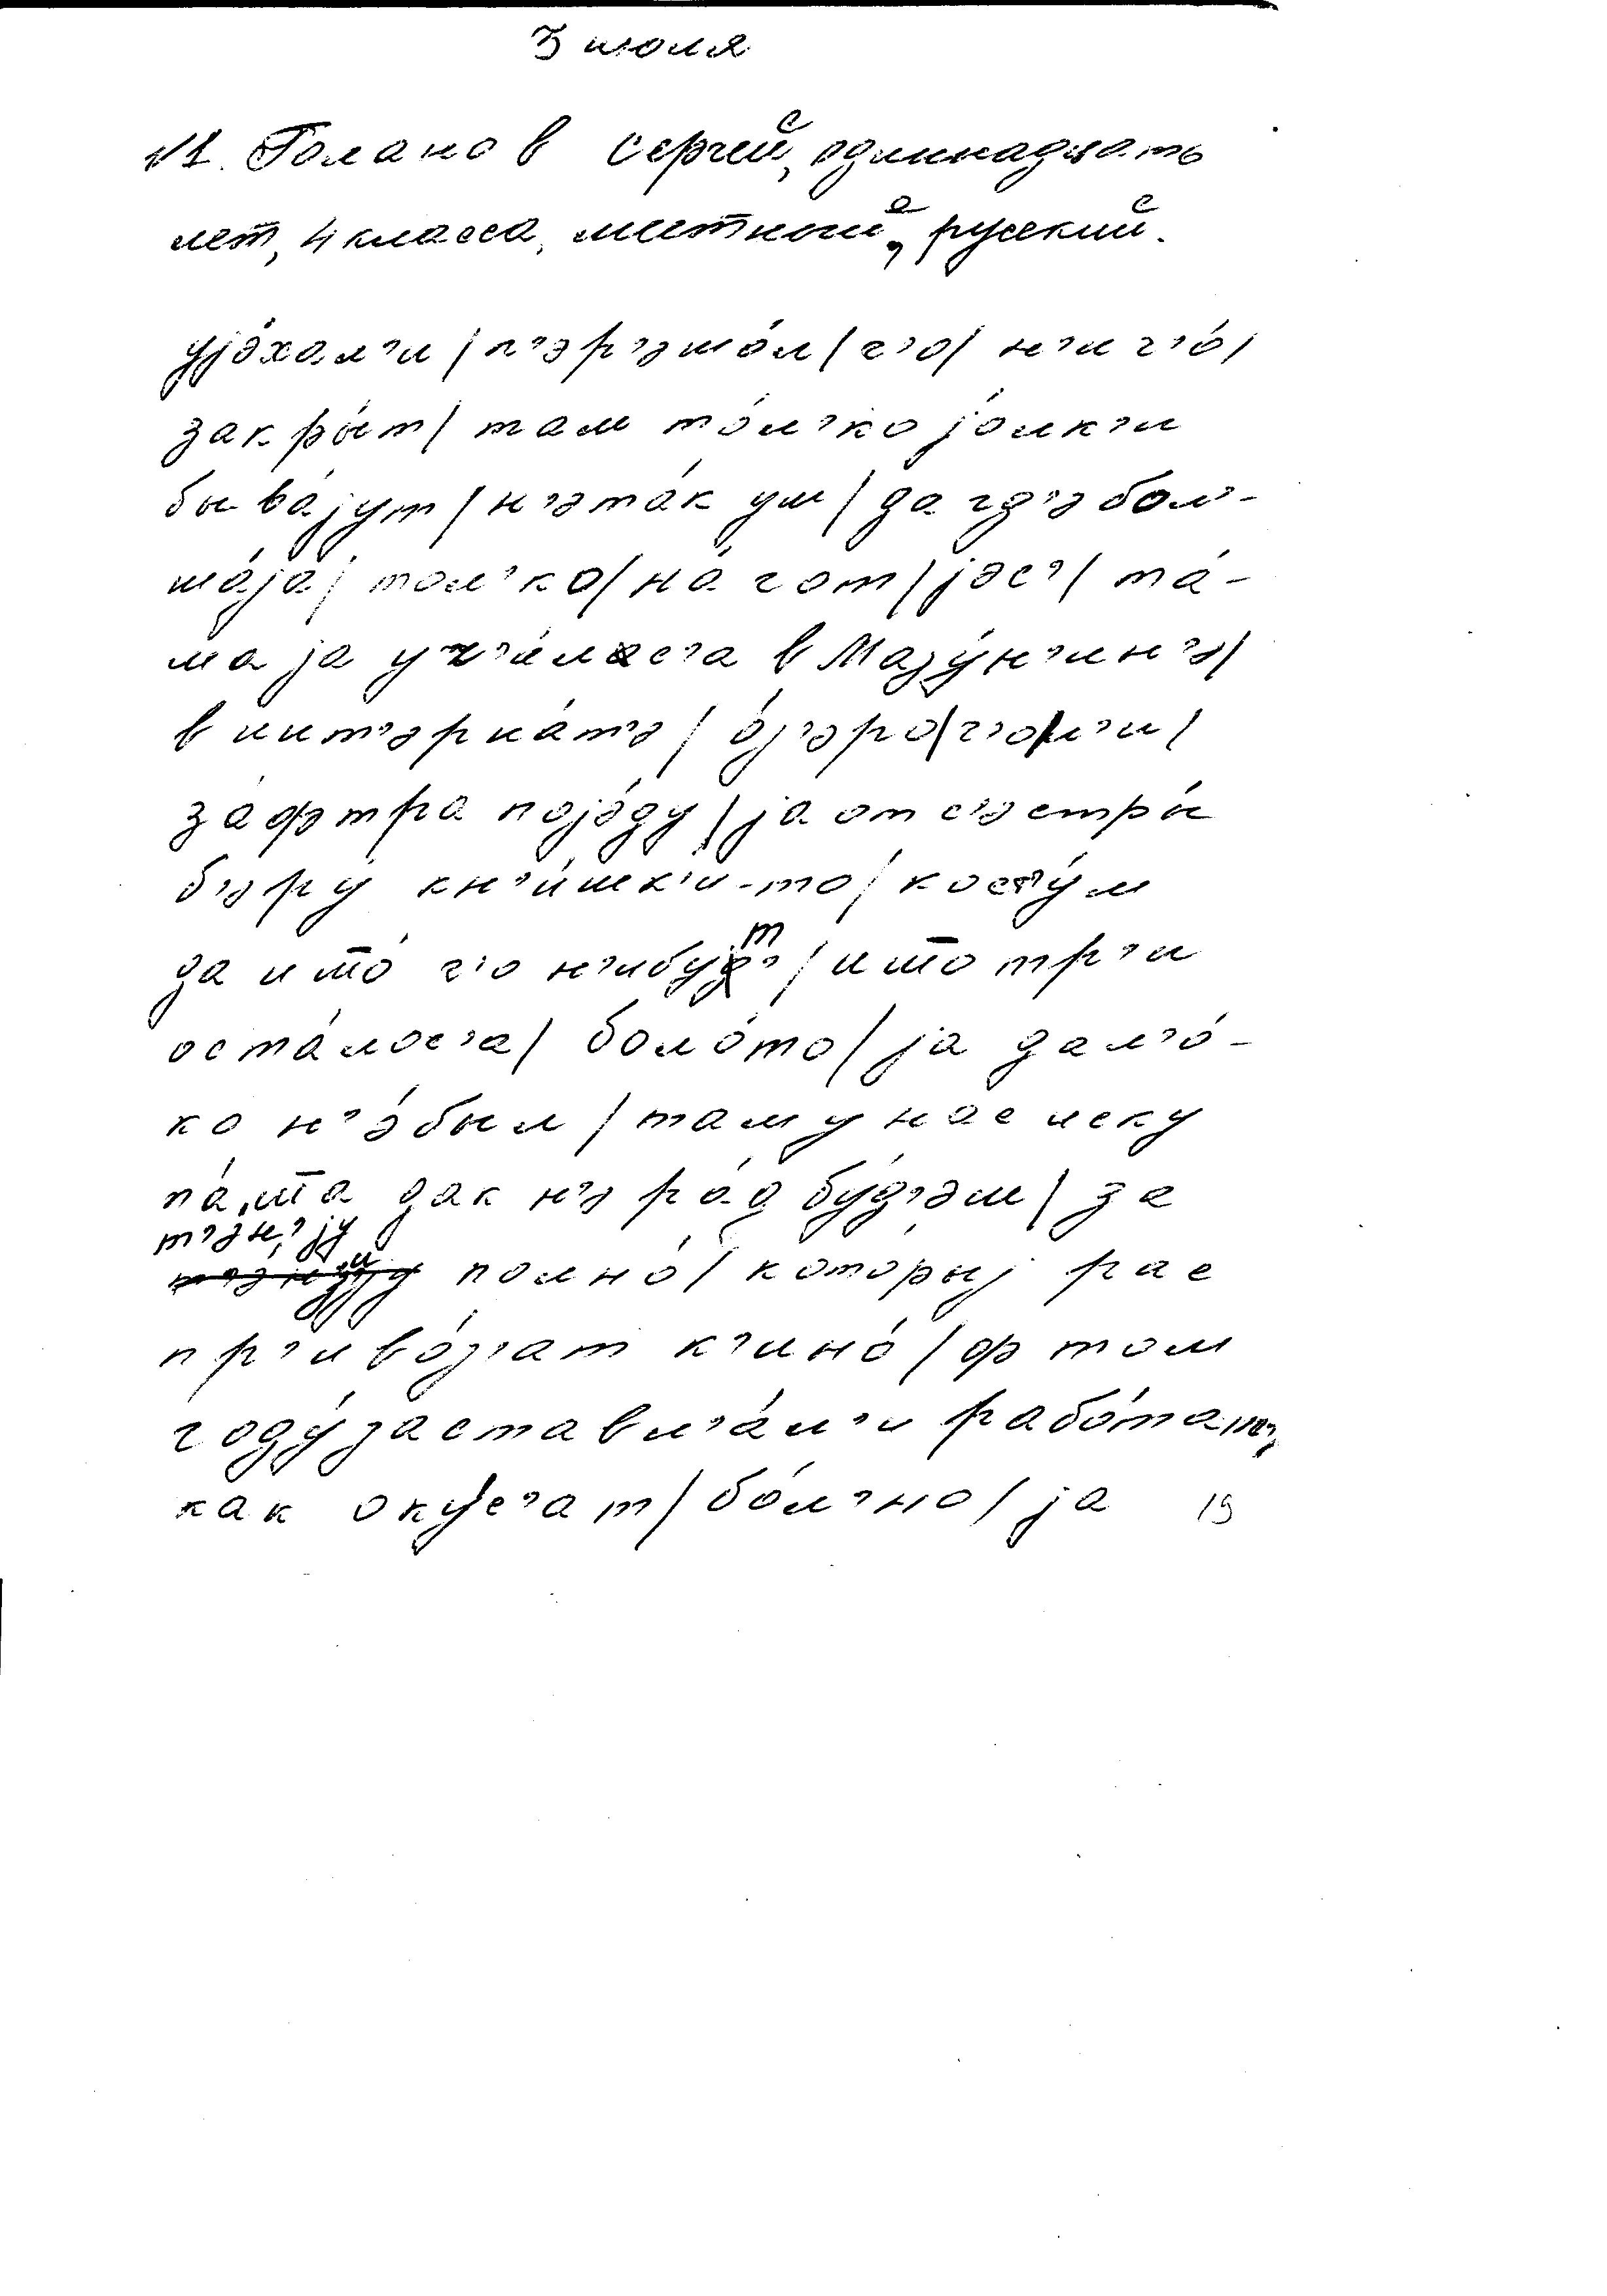 3 июля
№1. Голанов Сергей, одиннадцать
лет, 4 класса, местный, русский.
ујэ́хал'и / п'эр'эшо́л / ч'о / н'ич'о́ /
закры́т / там то́л'ко јо́лк'и
быва́јут / н'э та́к уш / да гд'э бол'-
ша́ја / тол'ко / на́ гот / јэс' / та́-
ма ја уч'и́лс'а в Мазу́н'ин'э /
в интэрна́т'э / о́з'эро / ч'о / л'и /
за́фтра појэ́ду / ја от с'эстры́
б'эру́ кн'и́шк'и-то / кост'у́м
да што́ ч'о н'ибут' / што тр'и
оста́лос'а / боло́то / ја дал'о́-
ко н'э́ был / там у нас иску
па́шта дак н'э ра́д бу́д'эш / за
т'эн',ју полно́ / кото́рыј рас
пр'иво́з'ат к'ино́ / ф том
году́ заставл'а́л'и рабо́тат'
как оку́с'ат / бо́л'но / ја 19